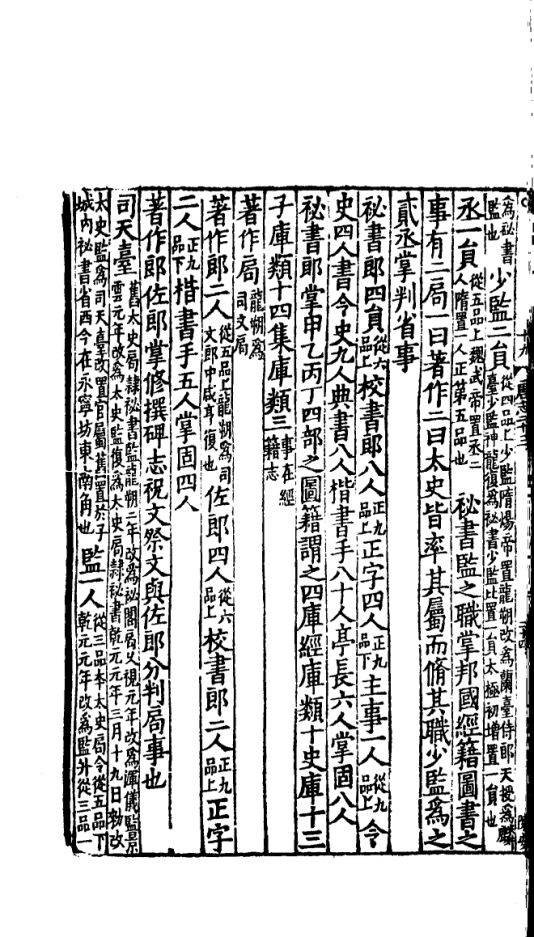 為祕書監也 少監二員從四品上少監隋煬帝置龍朔改為蘭臺侍郎天授為麟臺少監神龍復為祕書少監比置一員太極初增置一員也
丞一員從五品上魏武帝置丞二人隋置一人正第五品也 祕書監之職掌邦國經籍圖書之
事有二局一曰著作二曰太史皆率其屬而脩其職少監為之
貳丞掌判省事
祕書郎四員從六品上校書郎八人正九品上正字四人正九品下主事一人從九品上令
史四人書令史九人典書八人楷書手八十人亭長六人掌固八人
祕書郎掌甲乙丙丁四部之圖籍謂之四庫經庫類十史庫十三
子庫類十四集庫類三事在經籍志
著作局龍朔為司文局
著作郎二人從五品上龍朔為司文郎中咸亨復也佐郎四人從六品上校書郎二人正九品上正字
二人正九品下楷書手五人掌固四人
著作郎佐郎掌修撰碑志祝文祭文與佐郎分判局事也
司天臺舊太史局隷祕書監龍朔二年改為祕閣局久視元年改為渾儀監景雲元年改為太史監復為太史局隷祕書乾元元年三月十九日勑改
太史監為司天臺改置官屬舊置於子城內祕書省西今在永寧坊東南角也 監一人從三品本太史局令從五品下乾元元年改為監升從三品一